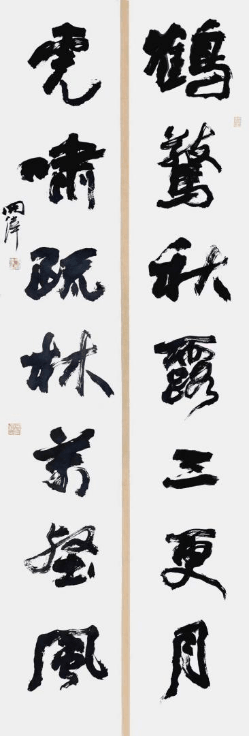 鶴驚秋露三更月
虎嘯疏林萬壑風